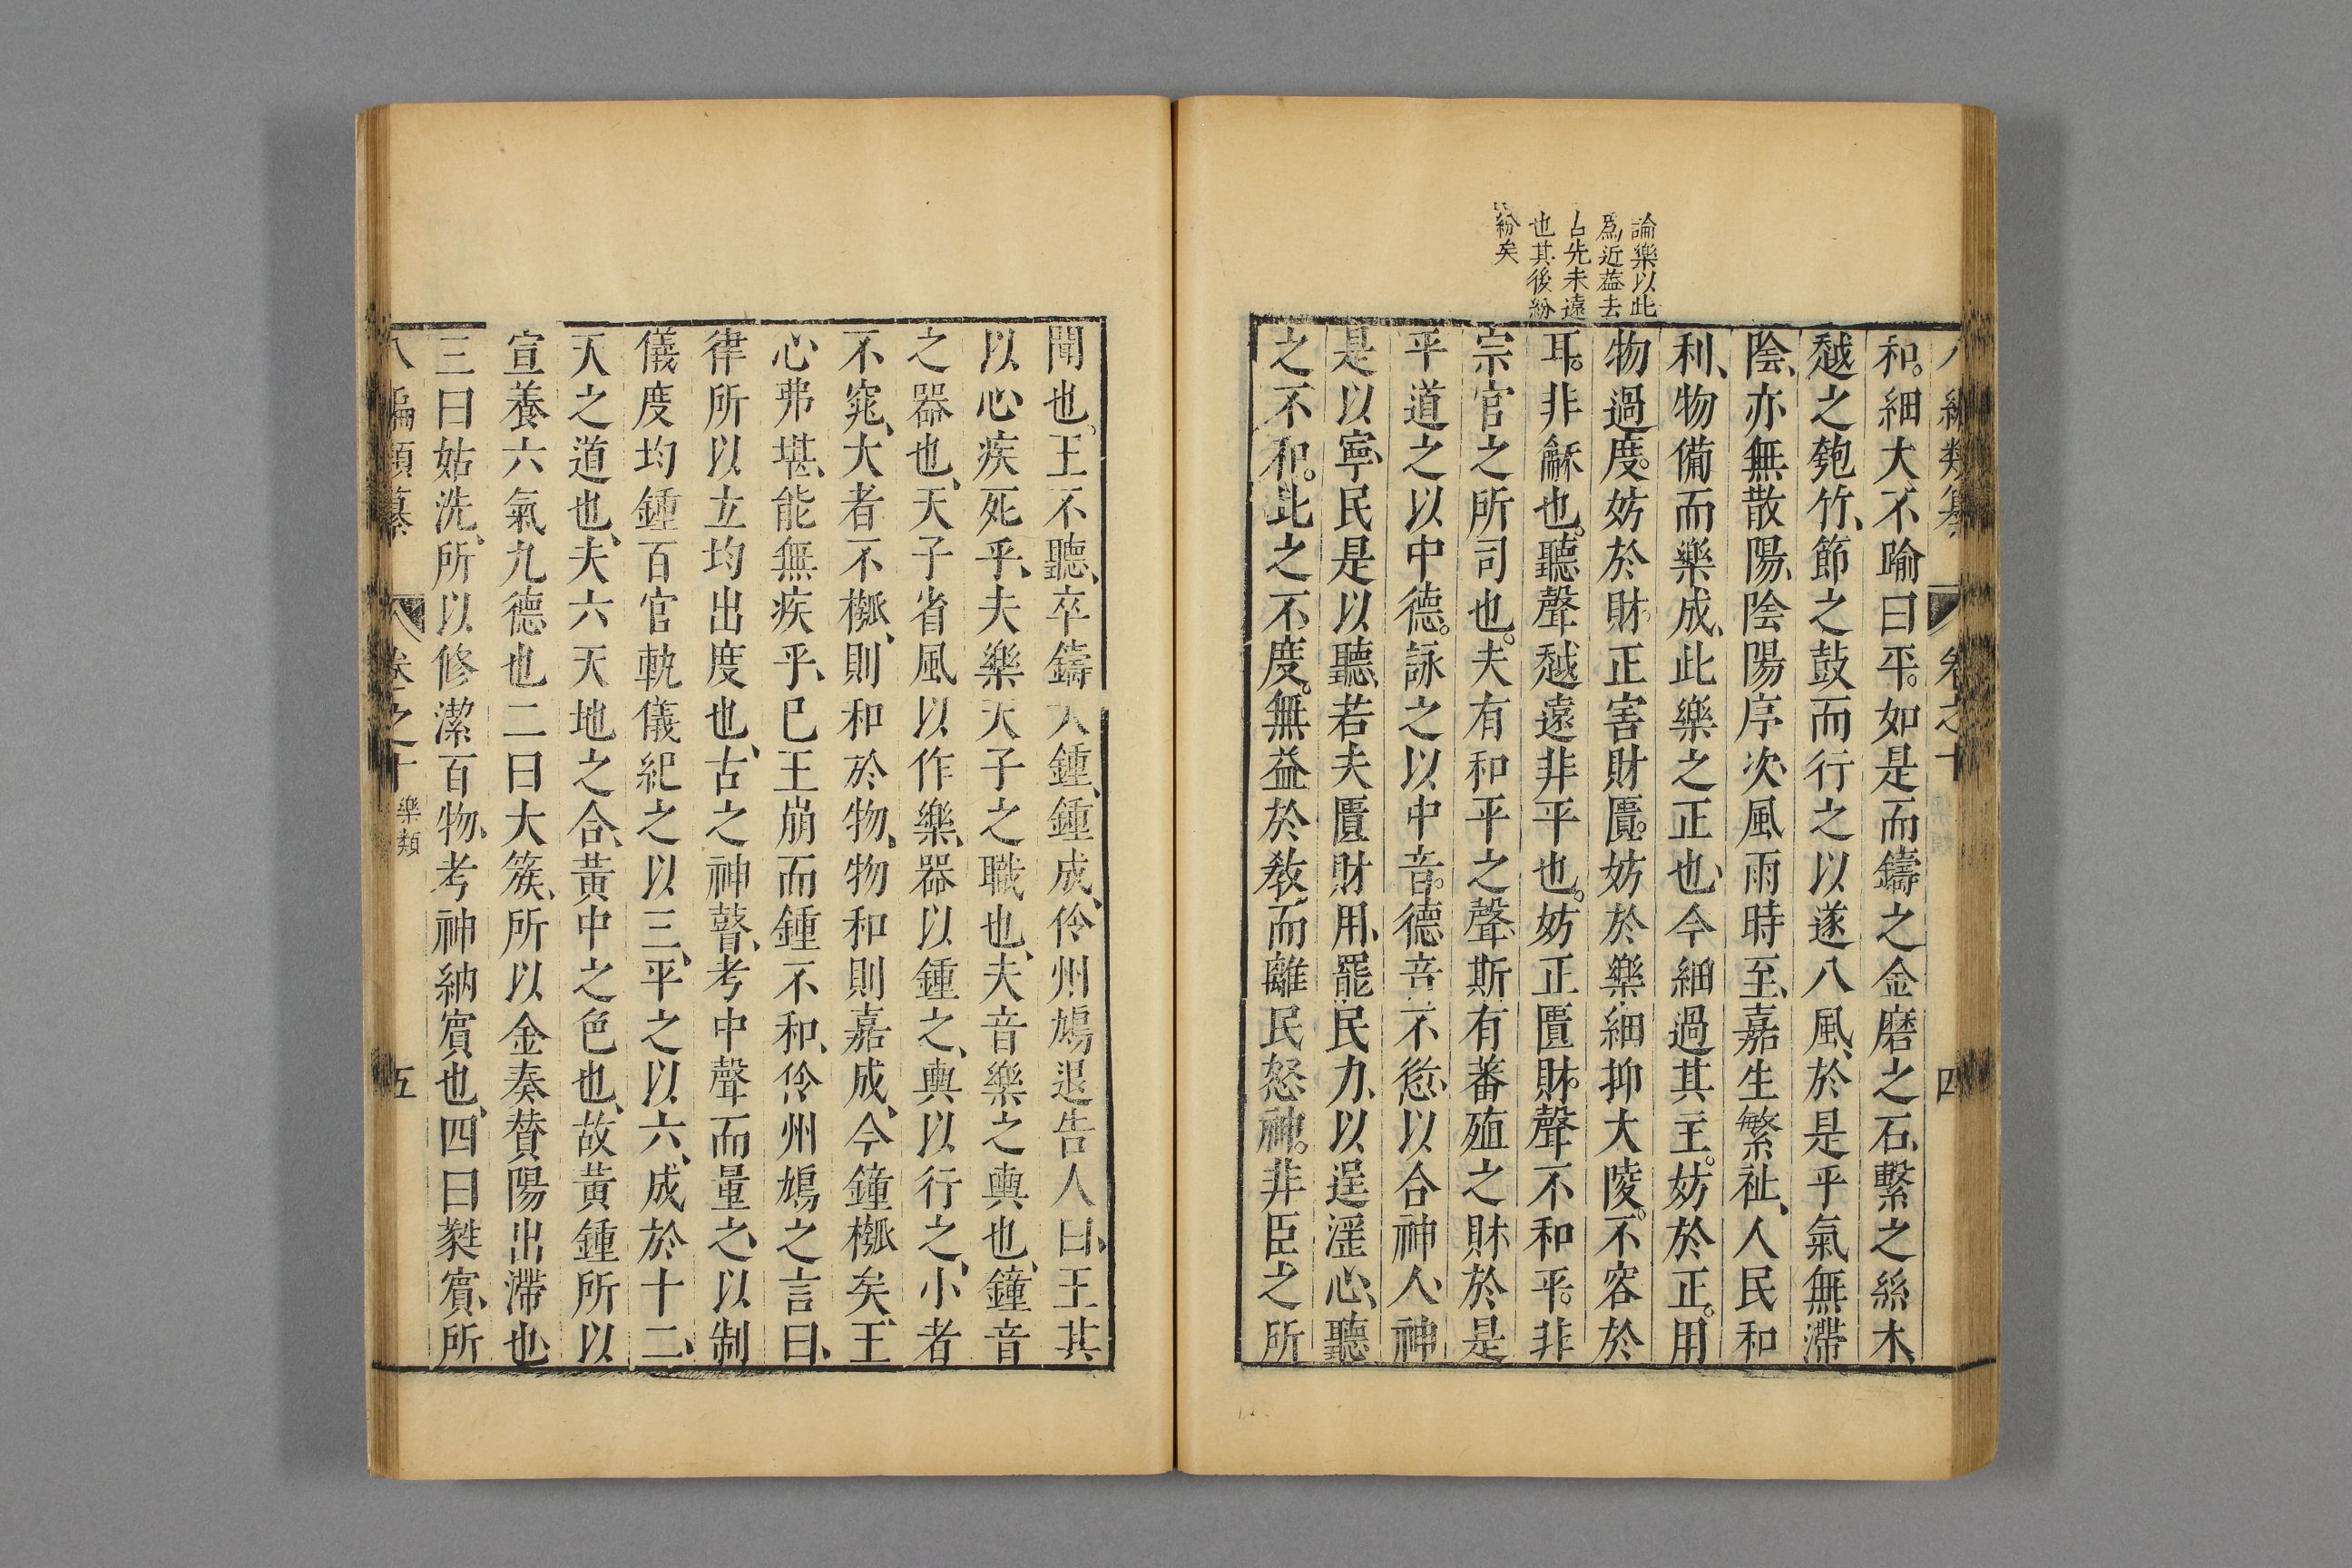 論樂以此
爲近葢去
古先未遠
也其後紛
紛矣
八編類纂 卷之十 四
和。細大不踰曰平。如是而鑄之金磨之石、繫之絲木、
越之匏竹、節之鼓而行之以遂八風、於是乎氣無滯
陰、亦無散陽、陰陽序次、風雨時至、嘉生繁祉、人民和
利、物備而樂成、此樂之正也、今細過其主。妨於正。用
物過度。妨於財。正害財匱。妨於樂細抑大陵。不容於
耳。非龢也。聽聲越遠非平也。妨正匱財。聲不和平。非
宗官之所司也。夫有和平之聲、斯有蕃殖之財於是
乎道之以中德。詠之以中音。德音不愆、以合神人、神
是以寧、民是以聽、若夫匱財用、罷民力、以逞淫心、聽
之不和。比之不度。無益於教、而離民怒神。非臣之所
聞也。王不聽、卒鑄大鍾、鍾成、伶州鳩退告人曰、王其
以心疾死乎、夫樂天子之職也、夫音樂之輿也、鐘音
之器也、天子省風以作樂、器以鍾之、輿以行之、小者
不窕、大者不槬、則和於物、物和則嘉成、今鐘槬矣、王
心弗堪、能無疾乎、已王崩而鍾不和、伶州鳩之言曰、
律所以立均出度也、古之神瞽、考中聲而量之、以制
儀度均鍾百官軌儀紀之以三、平之以六、成於十二、
天之道也、夫六天地之合、黃中之色也、故黃鍾所以
宣養六氣九德也二曰大簇、所以金奏贊陽出滯也、
三曰姑洗、所以修潔百物、考神納賓也、四曰蕤賓、所
八編類纂 卷之十 樂類 五